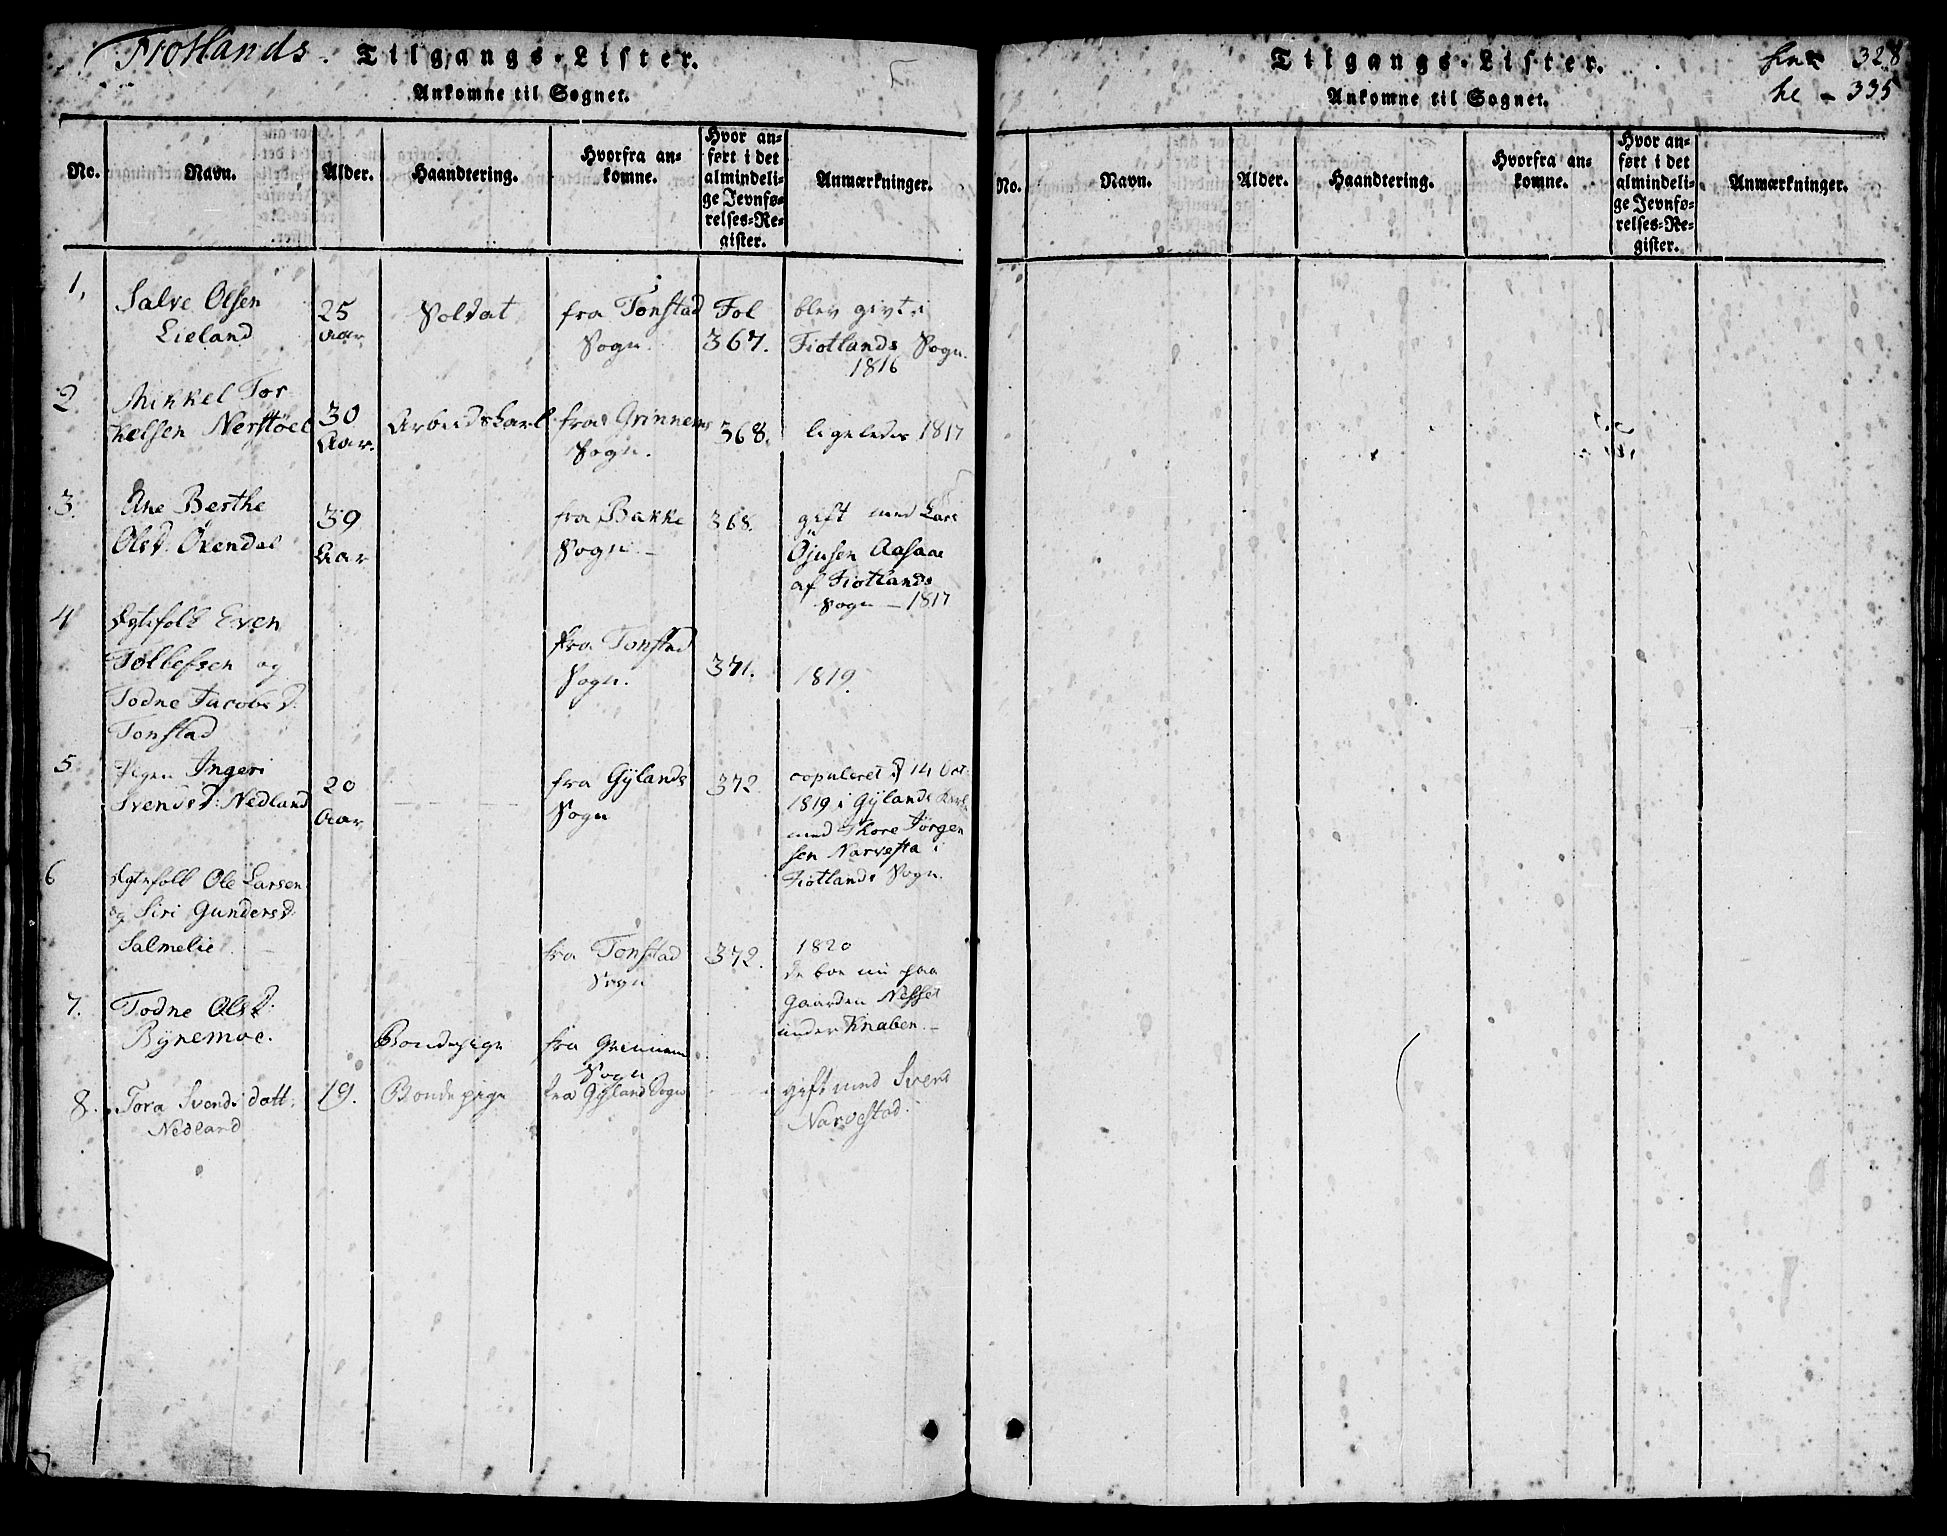 Fiotlands. Tilgangs-Lister.
Ankomne til Sognet.
No.
Navn.
Alder.
Haandtering.
Hvorfra an-
komne.
Hvor an-
ført i det
almindeli-
ge Jevnfø-
relses-Re-
gister.
Anmærkninger.
1,
Salve Olsen
Lieland
25
Aar
Soldat
fra Tonstad
Sogn.
Fol
367.
blev givt i
Fiotlands Sogn.
1816
2
Mikkel Tor
kelsen Nerstøel
30
Aar.
Arbeidskarl
fra Grinnems
Sogn.
368.
ligeledes 1817
3.
Ane Berthe
Olsd. Øvendal
39
Aar
fra Bakke
Sogn –
368.
gift med Lars
Øjusen Aasaae
af Fiotlands
Sogn – 1817
4
Ægtefolk Even
Tollefsen og
Todne Jacobsd:
Tonstad
fra Tonstad
Sogn.
371.
1819.
5
Pigen Ingeri
Svendsd: Nedland
20
Aar
fra Gÿlands
Sogn
372
copuleret d 14 Oct:
1819 i Gÿlands Kirke
med Thore Jørgen
sen Narvesta i
Fiotlands Sogn.
6
Ægtefolk Ole Larsen
og Siri Gundersd:
Salmelie
fra Tonstad
Sogn
372.
1820
de boe nu paa
Gaarden Nesset
under Knaben. –
7.
Todne Olsd:
Bÿnemoe.
Bondepige
fra Grinnem
Sogn
8.
Tora Svends datt:
Nedland
19.
Bondepige
fra Gÿland Sogn
gift med Svend
Narvestad.
Tilgangs-Lister.
Ankomne til Sognet.
328
he – 335
No.
Navn.
Alder.
Haandtering.
Hvorfra an-
komne.
Hvor an-
ført i det
almindeli-
ge Jevnfø-
relses-Re-
gister.
Anmærkninger.